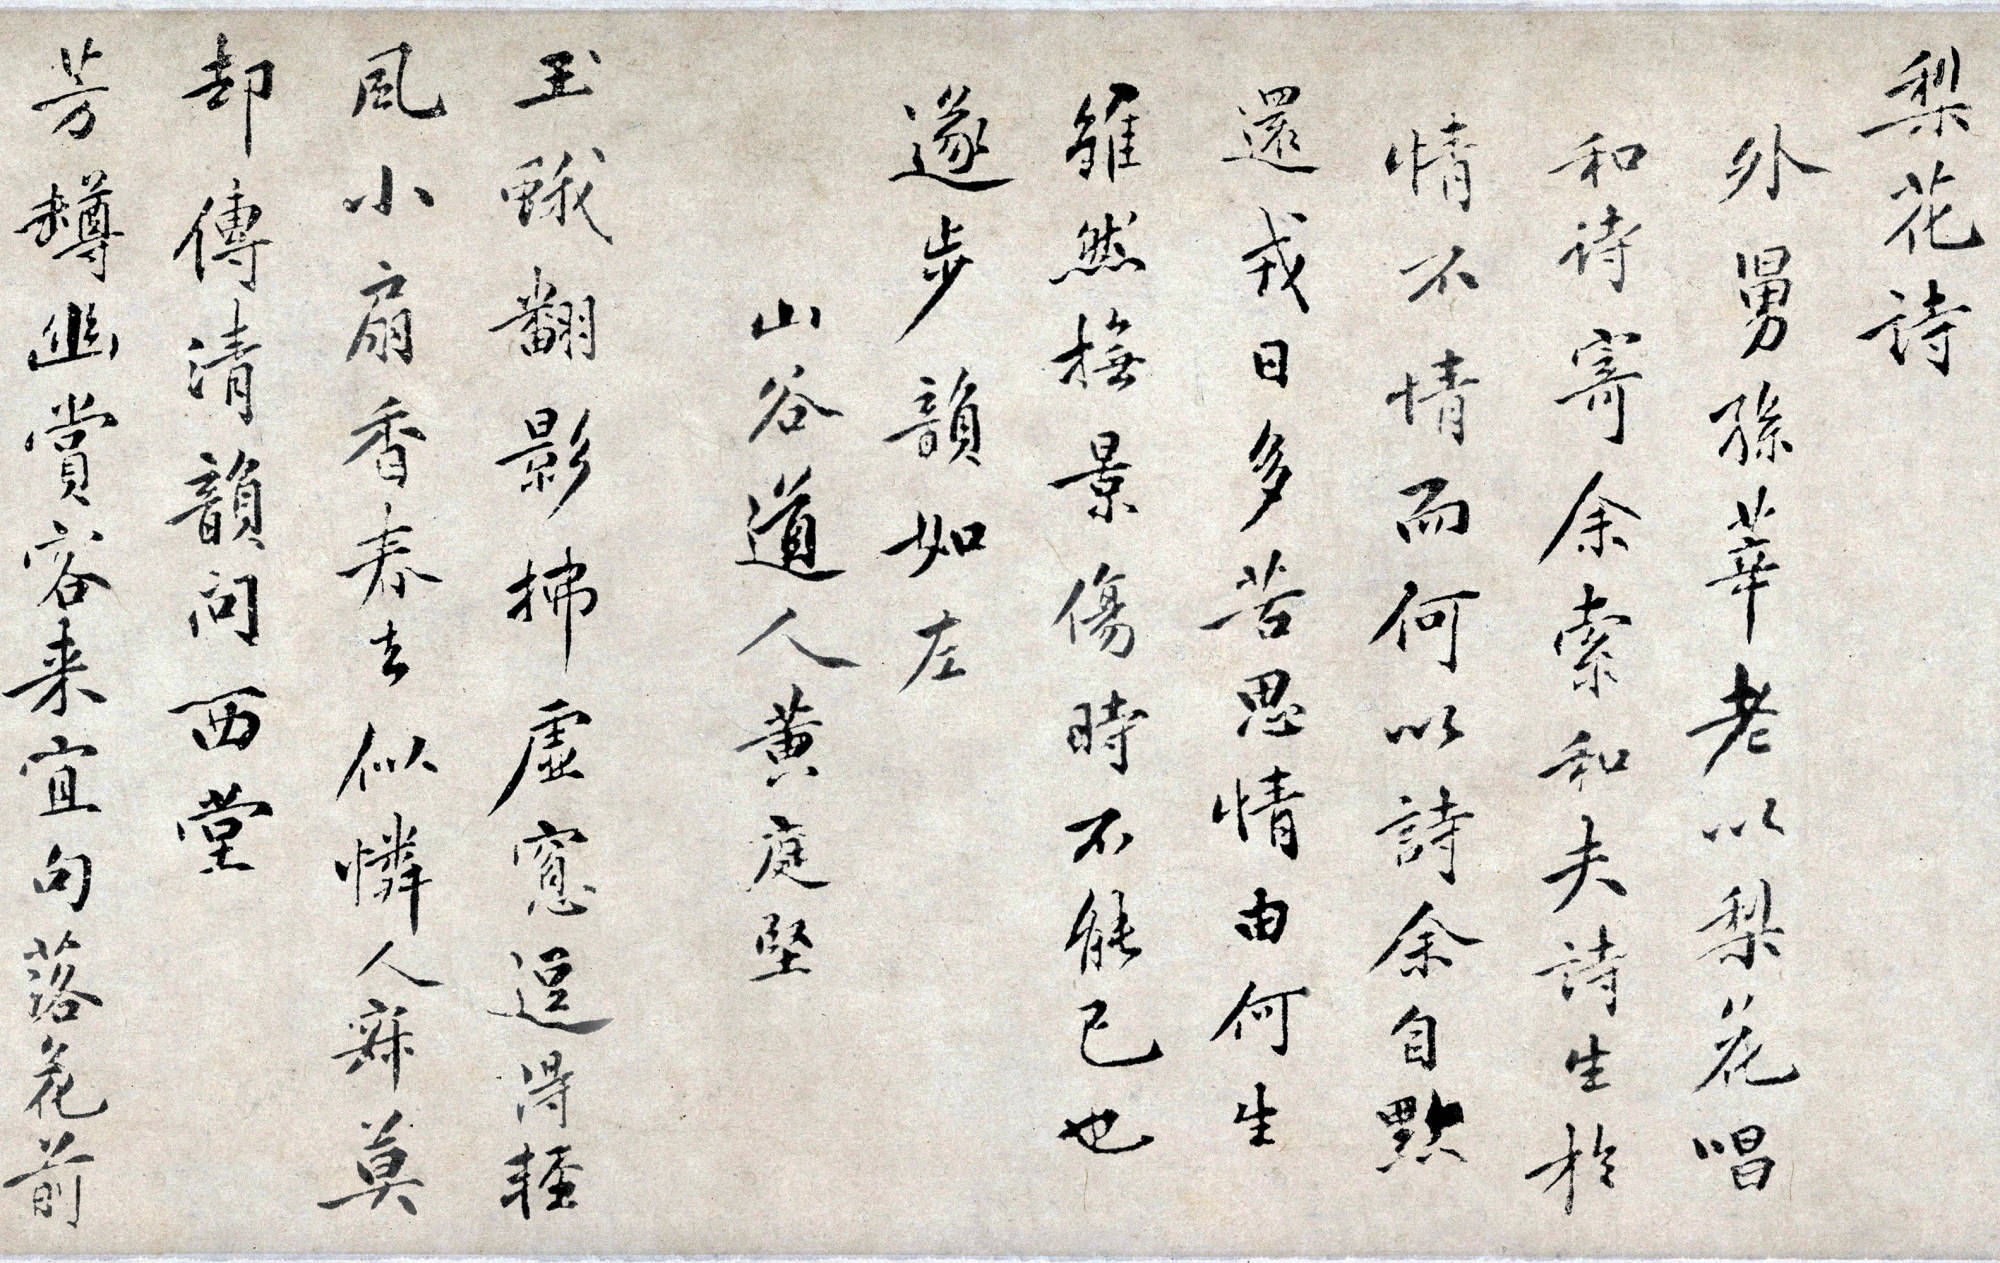 梨花詩
外舅孫莘老以梨花唱
和詩寄余索和夫詩生於
情不情而何以詩余自黜
還戎日多苦思情由何生
雖然撫景傷時不能已也
遂步韻如左
山谷道人黃庭堅
玉蛾翻影拂虛窻逗得輕
風小扇香春去似憐人寂莫
却傳清韻問西堂
芳罇幽賞客来宜句落花前